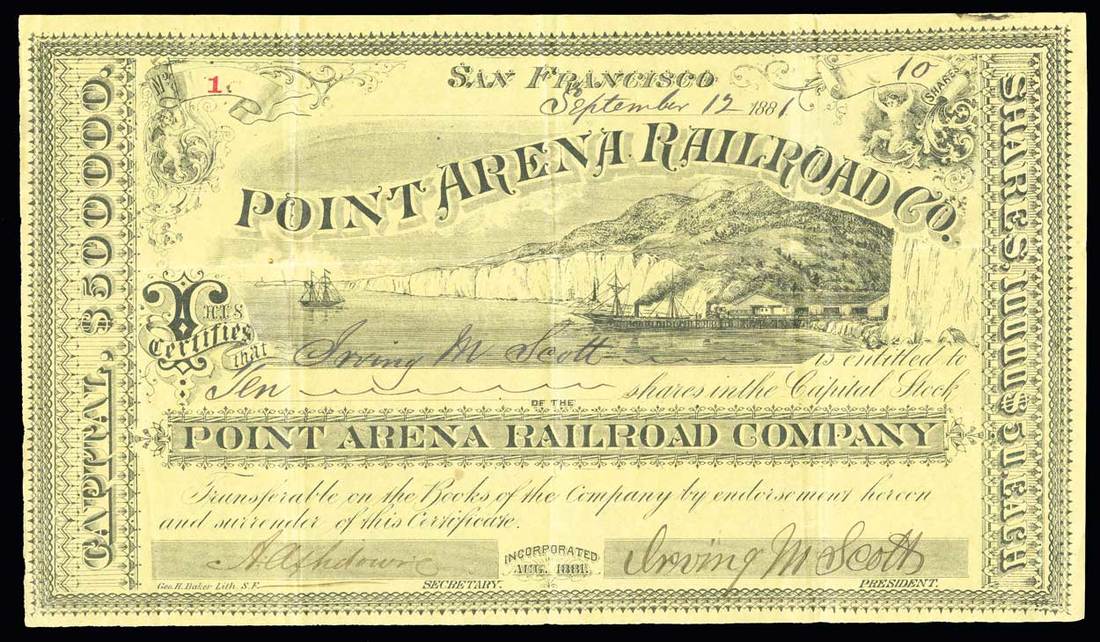 No. 1.
SAN FRANCISCO
September 12 1881.
10
SHARES
POINT ARENA RAILROAD CO.
THIS
Certifies
that Irving M Scott is entitled to
Ten shares in the Capital Stock
OF THE
POINT ARENA RAILROAD COMPANY
Transferable on the Books of the Company by endorsement hereon
and surrender of this Certificate.
INCORPORATED
AUG. 1881.
Irving M Scott
Geo. H. Baker Lith S.F.
SECRETARY.
PRESIDENT.
CAPITAL, $500000.
SHARES, 10000 $50 EACH